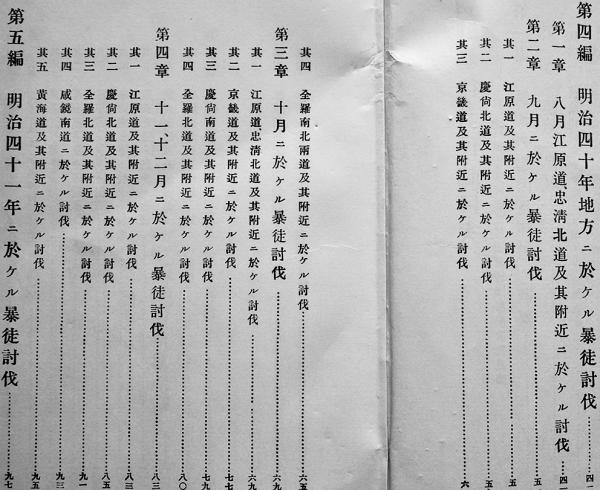 第四編 明治四十年地方ニ於ケル暴徒討伐
第一章 八月江原道忠清北道及其附近ニ於ケル討伐
第二章 九月ニ於ケル暴徒討伐
其一 江原道及其附近ニ於ケル討伐
其二 慶尚北道及其附近ニ於ケル討伐
其三 京畿道及其附近ニ於ケル討伐
其四 全羅南北兩道及其附近ニ於ケル討伐 六五
第三章 十月ニ於ケル暴徒討伐 六九
其一 江原道忠清北道及其附近ニ於ケル討伐 六九
其二 京畿道及其附近ニ於ケル討伐 七七
其三 慶尚南道及其附近ニ於ケル討伐 七九
其四 全羅北道及其附近ニ於ケル討伐 八〇
第四章 十一、十二月ニ於ケル暴徒討伐 八三
其一 江原道及其附近ニ於ケル討伐 八三
其二 慶尚北道及其附近ニ於ケル討伐 八五
其三 全羅北道及其附近ニ於ケル討伐 九一
其四 咸鏡南道ニ於ケル討伐 九三
其五 黃海道及其附近ニ於ケル討伐 九五
第五編 明治四十一年ニ於ケル暴徒討伐 九七